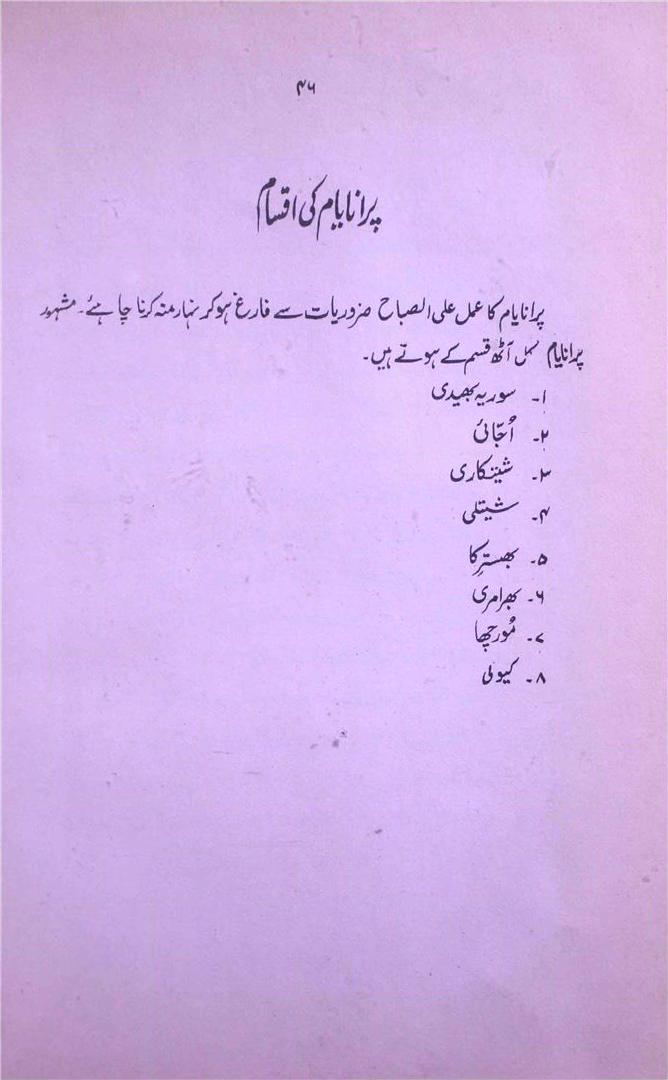 ۴۶
پرانایام کی اقسام
پرانایام کا عمل علی الصباح ضروریات سے فارغ ہو کر نہار منہ کرنا چاہئے۔ مشہور
پرانایام کل آٹھ قسم کے ہوتے ہیں۔
۱۔ سوریہ بھیدی
۲۔ اُجّائی
۳۔ شیتکاری
۴۔ شیتلی
۵۔ بھسترِکا
۶۔ بھرامری
۷۔ مُورچھا
۸۔ کیولی